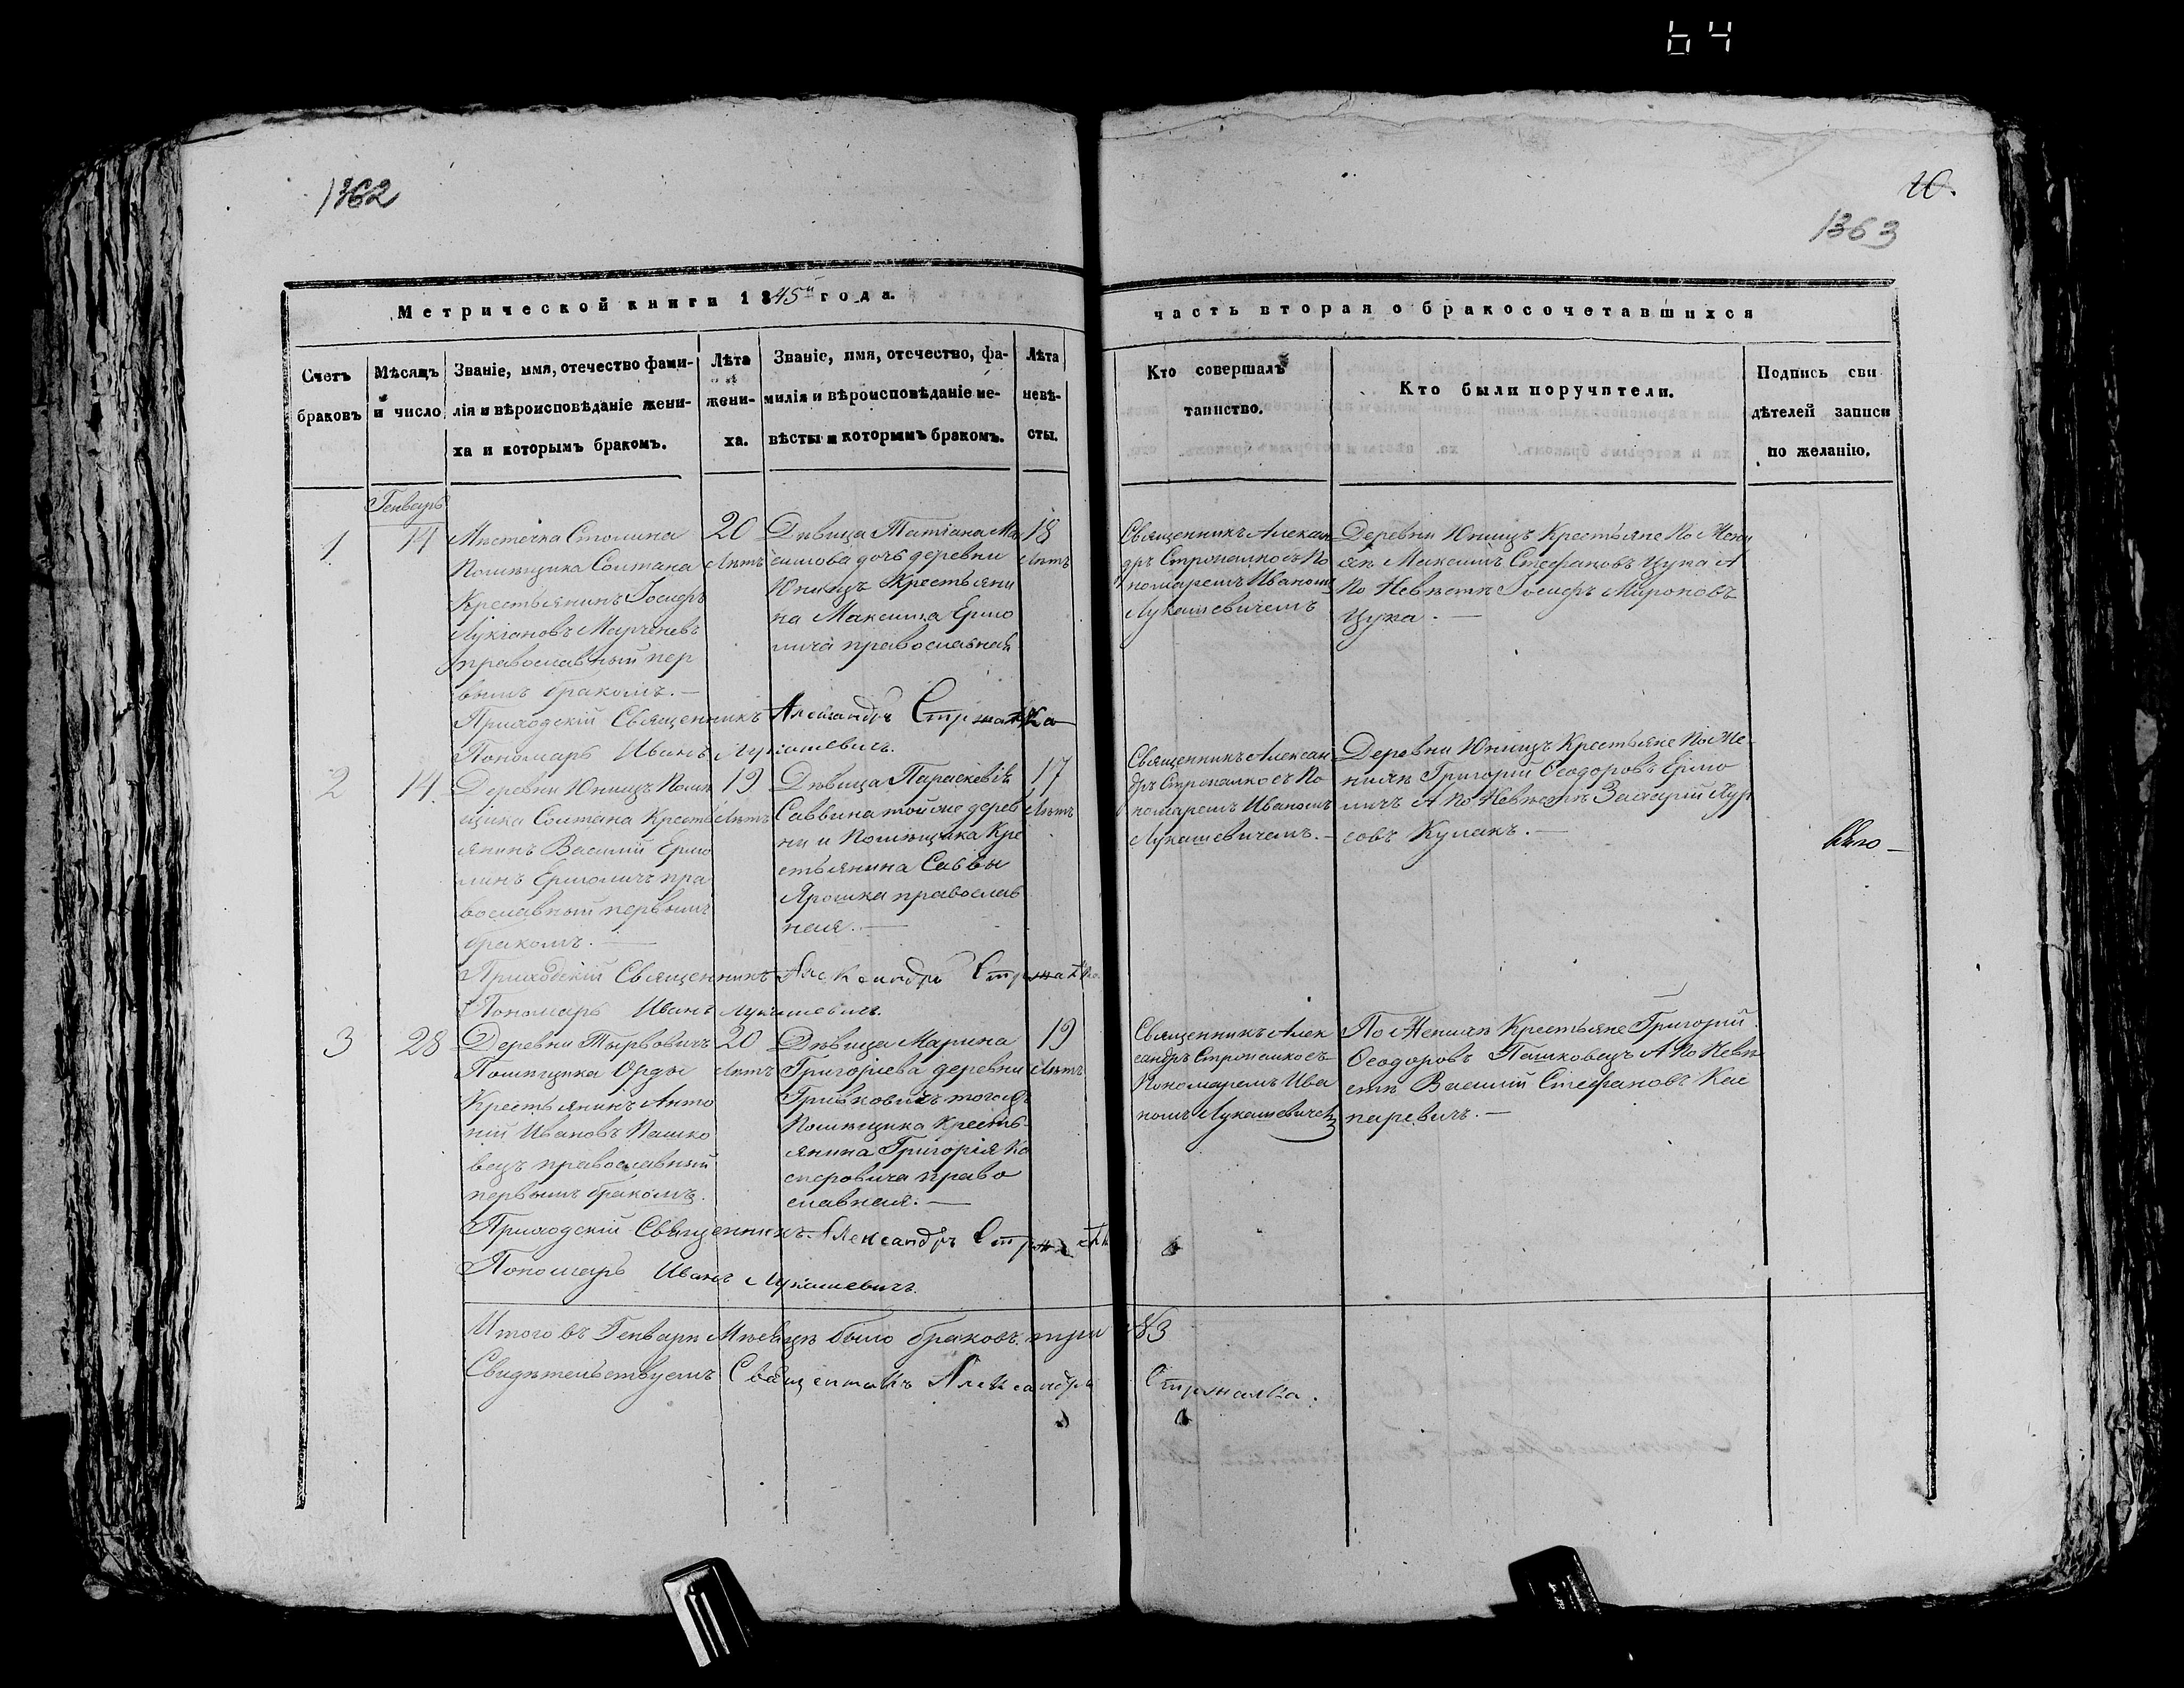 64
1362
20.
1363
Метрической книги 1845й года.
часть вторая о бракосочетавшихся
Счетъ браковъ
Мѣсяцъ и число
Званіе, имя, отечество фами-
лія и вѣроисповѣданіе жени-
ха и которымъ бракомъ.
Лѣта жени-
ха.
Званіе, имя, отечество, фа-
милія и вѣроисповѣданіе не-
вѣсты и которымъ бракомъ.
Лѣта невѣ-
сты.
Кто совершалъ
таинство.
Кто были поручители.
Подпись сви
дѣтелей записи
по желанію.
Генварь
1
14
Мѣстечка Столина
Помѣщика Солтана
Крестьянинъ Іосифъ
Лукіановъ
православный пер
вымъ бракомъ.—
20
Лѣтъ
Дѣвица Татіана Ма
симова дочь деревни
Юнищъ Крестьяни
на Максима Ермо
лича православная
18
Лѣтъ
Священникъ Алексан
дръ съ По
номаремъ Иваномъ
Лукашевичемъ
Деревни Юнищъ Крестьяне По Жени
хѣ Максимъ Стефановъ Цупа А
По Невѣстѣ Іосифъ Мироновъ
Цупа.—
Приходскій Священникъ Александръ
Пономарь Иванъ Лукашевичъ.
2
14.
Деревни Юнищъ Помѣ
щика Солтана Кресть
янинъ Василій Ермо
линъ Ермоличъ пра
вославный первымъ
бракомъ.—
19
Лѣтъ
Дѣвица Параскевія
Саввина той же дерев
ни и Помѣщика Кре
стьянина Саввы
Ярошка православ
ная.—
17
Лѣтъ
Священникъ Алексан
дръ съ По
номаремъ Иваномъ
Лукашевичемъ.—
Деревни Юнищъ Крестьяне По Же-
нихѣ Григорій Ѳеодоровъ Ермо
личъ А По Невѣстѣ Захарій
Кулакъ.—
Приходскій Священникъ Александръ
Пономарь Иванъ Лукашевичъ.
3
28
Деревни Тырвовичъ
Помѣщика Орды
Крестьянинъ Анто
ній Ивановъ Пашко
вецъ православный
первымъ бракомъ.
20
Лѣтъ
Дѣвица Марина
Григоріева деревни
Гривковичъ тогожъ
Помѣщика Кресть-
янина Григорія Ка
сперовича право
славная.—
19
Лѣтъ
Священникъ Алек
сандръ съ
Пономаремъ Ива
номъ Лукашевичемъ
По Женихѣ Крестьяне Григорій
Ѳеодоровъ Пашковецъ А По Невѣ
стѣ Василій Стефановъ Кас
паревичъ.—
Приходскій Священникъ Александръ
Пономарь Иванъ Лукашевичъ.
Итого въ Генварѣ Мѣсяцѣ было браковъ три №3
Свидѣтельствуемъ Священникъ Александръ